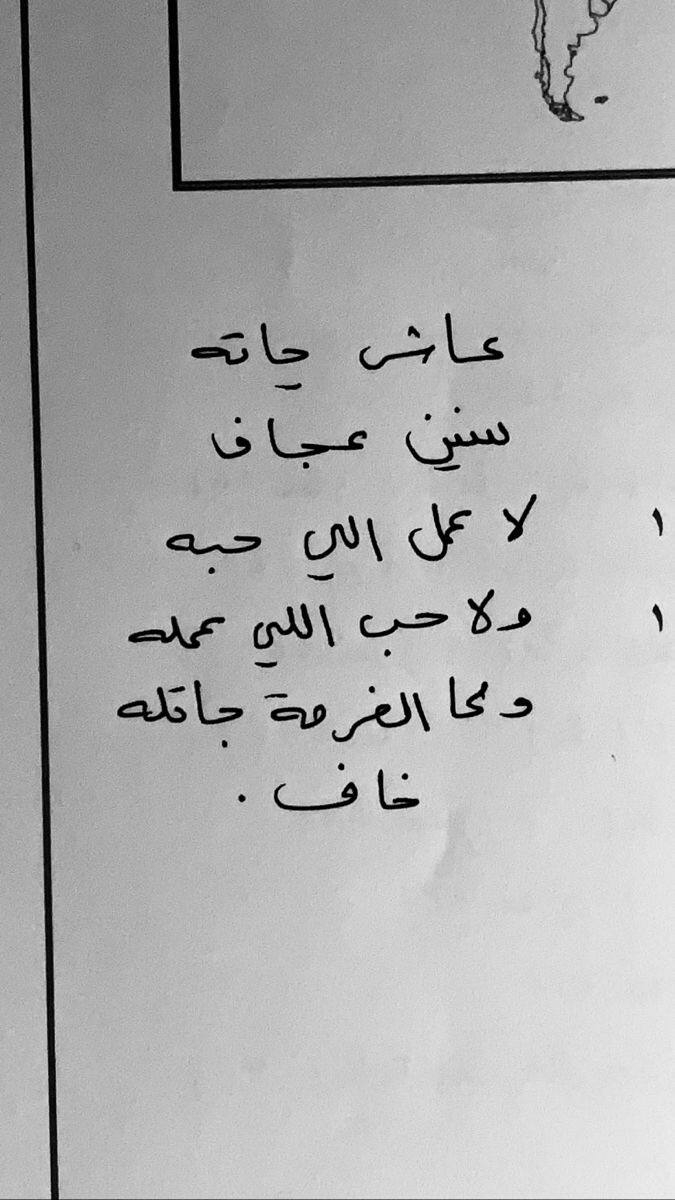 عاش حياته
سنين عجاف
لا عمل اللي حبه
ولا حب اللي عمله
ولما الفرصة جاتله
خاف .